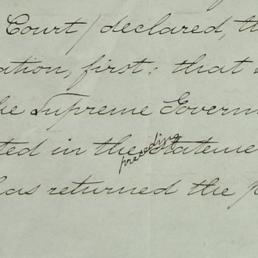 Court / declared, th
ation, first: that
he Supreme Govern
ted in the preceding stateme
has returned the p